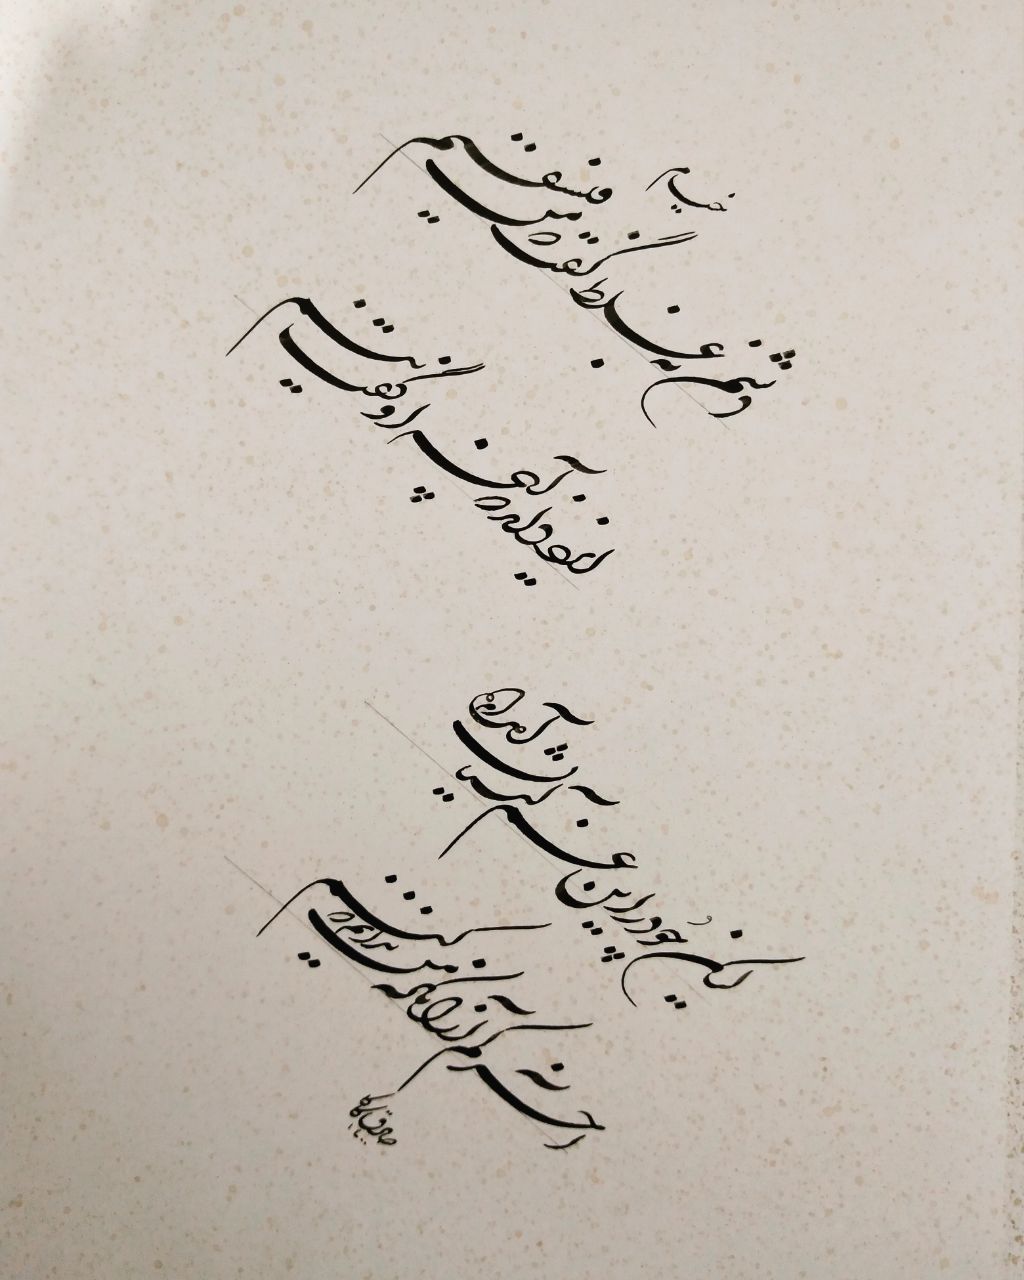 خیام
دشمن به غلط گفت که من فلسفیم
ایزد داند که آنچه او گفت نیم
لیکن چو در این غم آشیان آمده‌ام
آخر کم از آنکه من بدانم که کیم
صادق